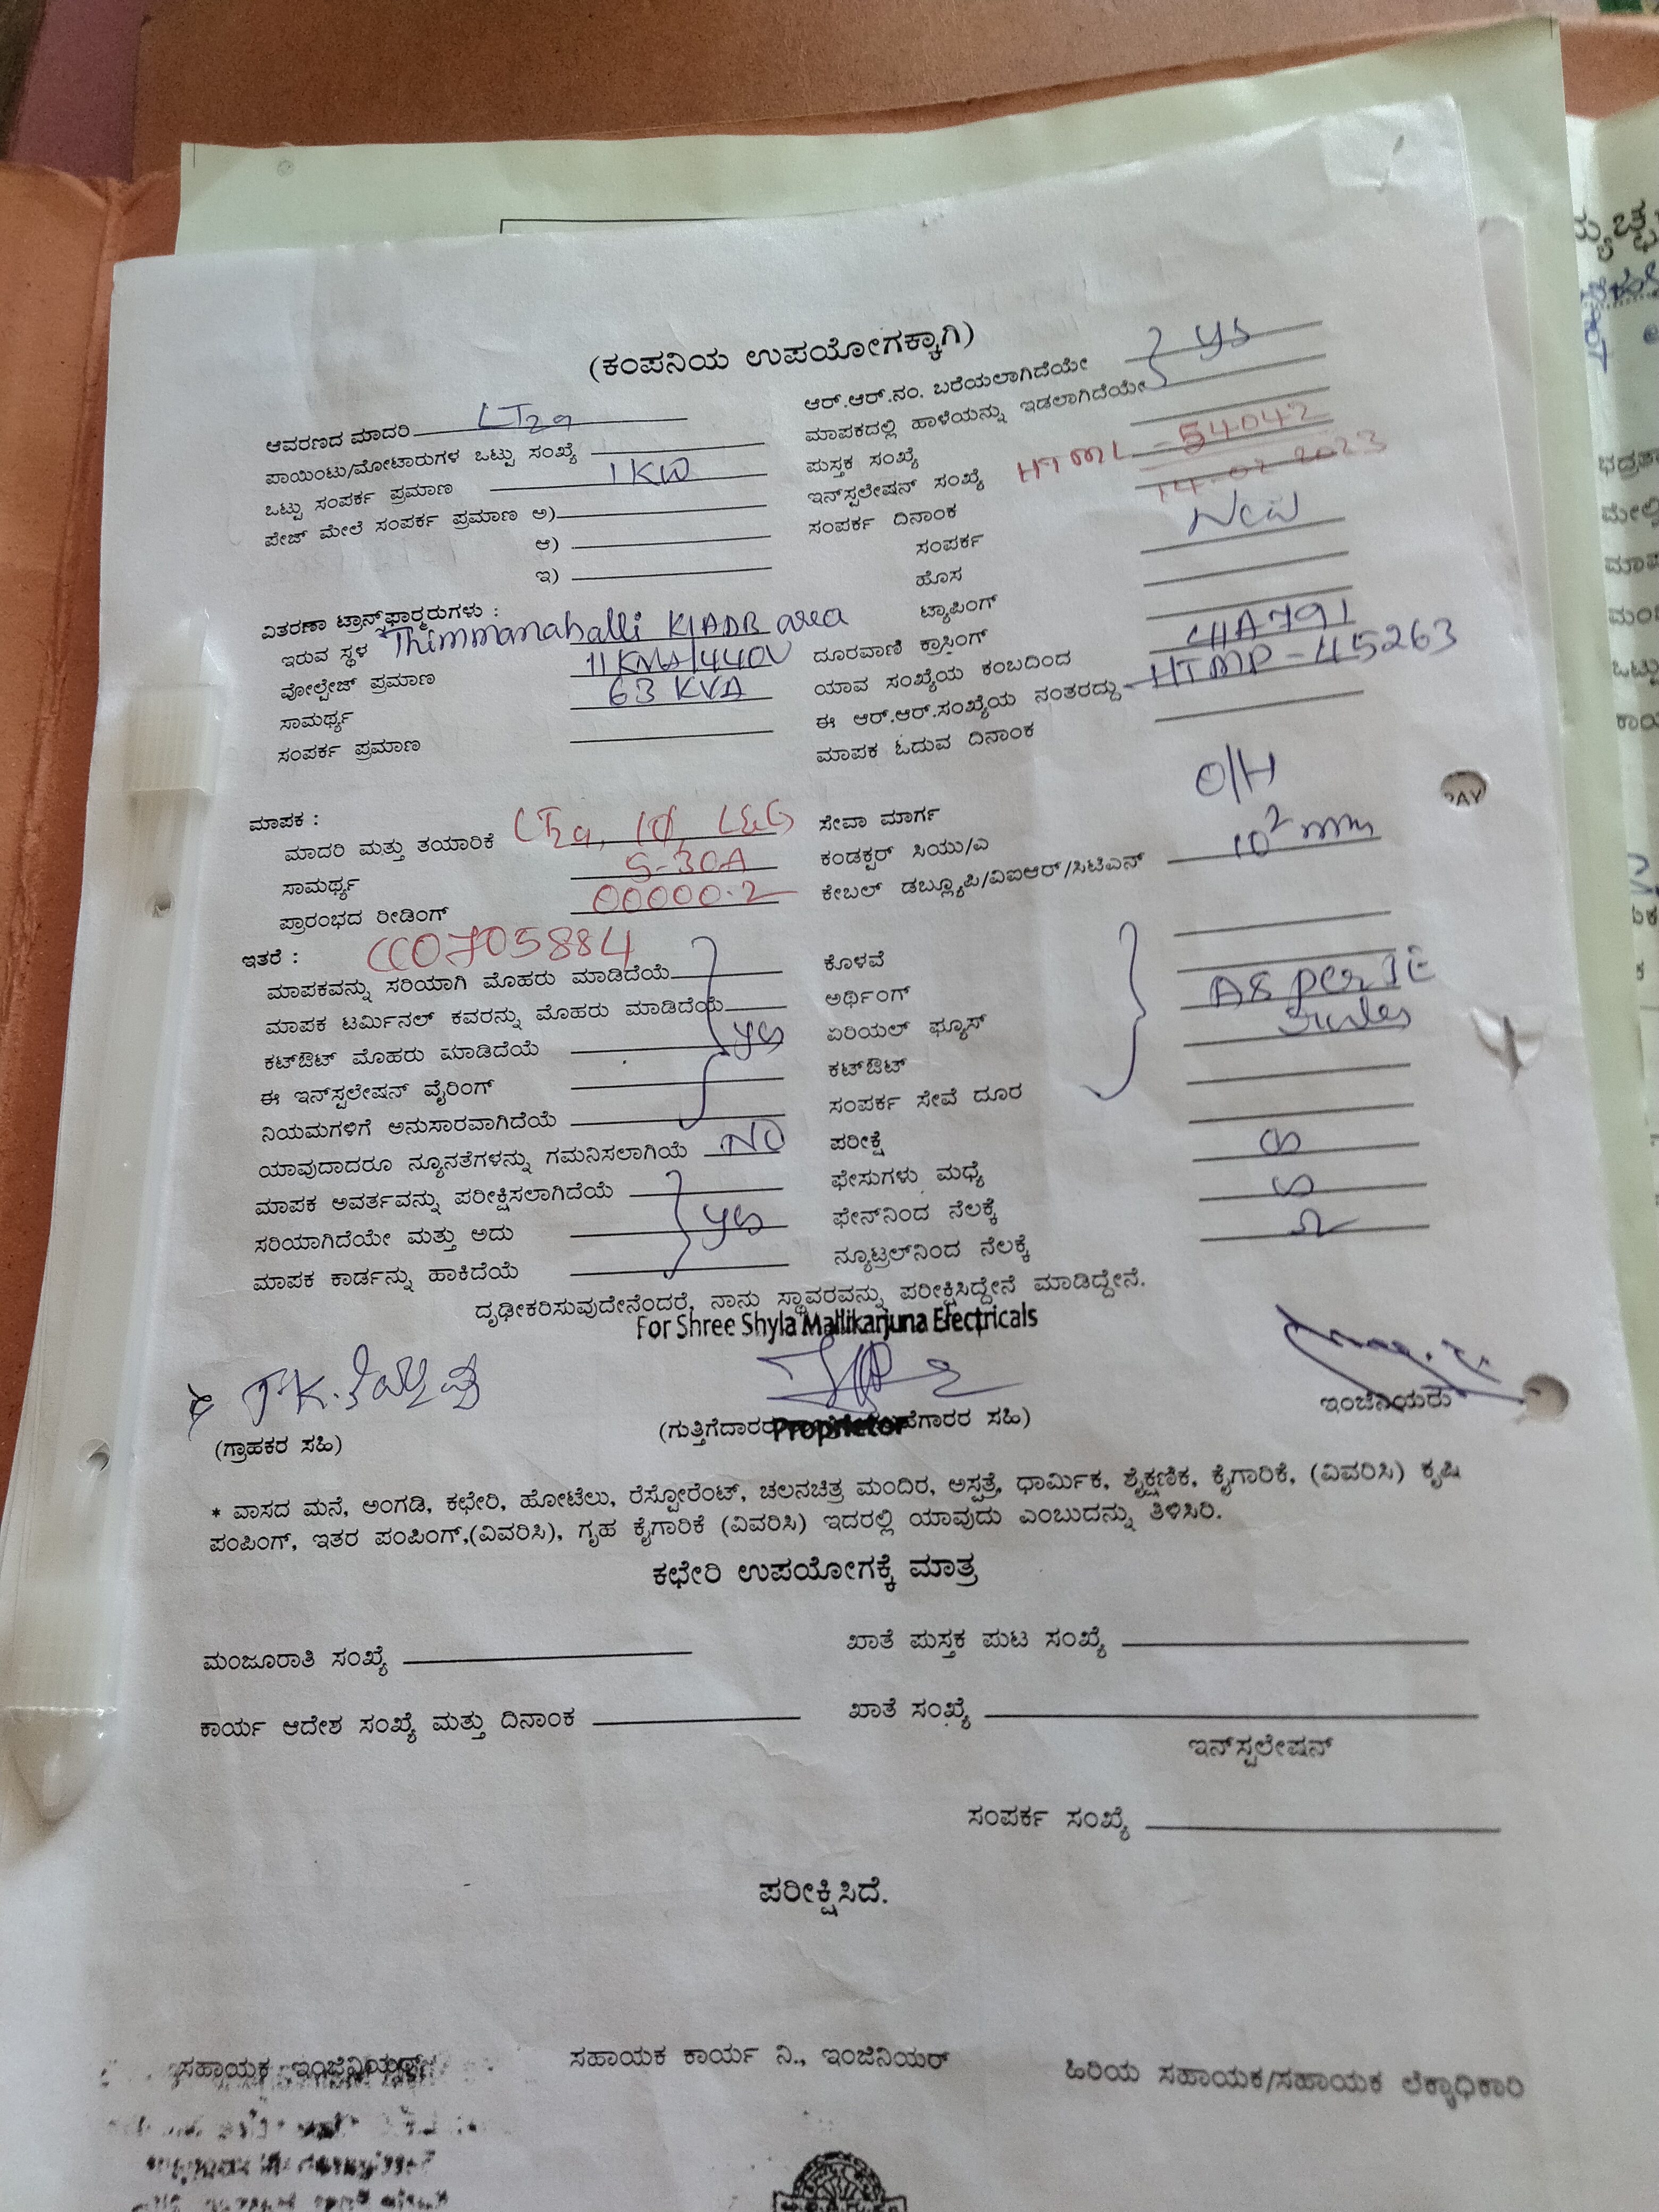 (ಕಂಪನಿಯ ಉಪಯೋಗಕ್ಕಾಗಿ)
ಆವರಣದ ಮಾದರಿ LT2a
ಪಾಯಿಂಟು/ಮೋಟಾರುಗಳ ಒಟ್ಟು ಸಂಖ್ಯೆ
ಒಟ್ಟು ಸಂಪರ್ಕ ಪ್ರಮಾಣ 1KW
ಪೇಜ್ ಮೇಲೆ ಸಂಪರ್ಕ ಪ್ರಮಾಣ ಅ)
ಆ)
ಇ)
ವಿತರಣಾ ಟ್ರಾನ್ಸ್‌ಫಾರ್‍ಮರುಗಳು :
ಇರುವ ಸ್ಥಳ Thimmanahalli KIADB area
ವೋಲ್ಟೇಜ್ ಪ್ರಮಾಣ 11KVA/440V
ಸಾಮರ್ಥ್ಯ 63 KVA
ಸಂಪರ್ಕ ಪ್ರಮಾಣ
ಆರ್.ಆರ್.ನಂ. ಬರೆಯಲಾಗಿದೆಯೇ
ಮಾಪಕದಲ್ಲಿ ಹಾಳೆಯನ್ನು ಇಡಲಾಗಿದೆಯೇ } yes
ಪುಸ್ತಕ ಸಂಖ್ಯೆ
ಇನ್‌ಸ್ಟಲೇಷನ್ ಸಂಖ್ಯೆ HTML-54042
ಸಂಪರ್ಕ ದಿನಾಂಕ 14-02-2023
ಸಂಪರ್ಕ New
ಹೊಸ
ಟ್ಯಾಪಿಂಗ್
ದೂರವಾಣಿ ಕ್ರಾಸಿಂಗ್
ಯಾವ ಸಂಖ್ಯೆಯ ಕಂಬದಿಂದ
ಈ ಆರ್.ಆರ್.ಸಂಖ್ಯೆಯ ನಂತರದ್ದು HTMP-45263
ಮಾಪಕ ಓದುವ ದಿನಾಂಕ
ಮಾಪಕ :
ಮಾದರಿ ಮತ್ತು ತಯಾರಿಕೆ LT2a, 1Ø, L&G
ಸಾಮರ್ಥ್ಯ 5-30A
ಪ್ರಾರಂಭದ ರೀಡಿಂಗ್ 00000.2
ಸೇವಾ ಮಾರ್ಗ O/H
ಕಂಡಕ್ಟರ್ ಸಿಯು/ಎ
ಕೇಬಲ್ ಡಬ್ಲ್ಯೂಪಿ/ವಿಐಆರ್/ಸಿಟಿಎನ್ 10² mm
ಇತರೆ : CC0705884
ಮಾಪಕವನ್ನು ಸರಿಯಾಗಿ ಮೊಹರು ಮಾಡಿದೆಯೆ
ಮಾಪಕ ಟರ್ಮಿನಲ್ ಕವರನ್ನು ಮೊಹರು ಮಾಡಿದೆಯೆ
ಕಟ್‌ಔಟ್ ಮೊಹರು ಮಾಡಿದೆಯೆ yes
ಈ ಇನ್‌ಸ್ಟಲೇಷನ್ ವೈರಿಂಗ್
ನಿಯಮಗಳಿಗೆ ಅನುಸಾರವಾಗಿದೆಯೆ
ಯಾವುದಾದರೂ ನ್ಯೂನತೆಗಳನ್ನು ಗಮನಿಸಲಾಗಿಯೆ NO
ಮಾಪಕ ಅವರ್ತವನ್ನು ಪರೀಕ್ಷಿಸಲಾಗಿದೆಯೆ
ಸರಿಯಾಗಿದೆಯೇ ಮತ್ತು ಅದು yes
ಮಾಪಕ ಕಾರ್ಡನ್ನು ಹಾಕಿದೆಯೆ
ಕೊಳವೆ
ಅರ್ಥಿಂಗ್
ಏರಿಯಲ್ ಫ್ಯೂಸ್ As per IE
ಕಟ್‌ಔಟ್ rules
ಸಂಪರ್ಕ ಸೇವೆ ದೂರ
ಪರೀಕ್ಷೆ
ಫೇಸುಗಳು ಮಧ್ಯೆ
ಫೇನ್‌ನಿಂದ ನೆಲಕ್ಕೆ
ನ್ಯೂಟ್ರಲ್‌ನಿಂದ ನೆಲಕ್ಕೆ
ದೃಢೀಕರಿಸುವುದೇನೆಂದರೆ, ನಾನು ಸ್ಥಾವರವನ್ನು ಪರೀಕ್ಷಿಸಿದ್ದೇನೆ ಮಾಡಿದ್ದೇನೆ.
For Shree Shyla Mallikarjuna Electricals
(ಗ್ರಾಹಕರ ಸಹಿ)
Proprietor
ಇಂಜಿನಿಯರು
* ವಾಸದ ಮನೆ, ಅಂಗಡಿ, ಕಛೇರಿ, ಹೋಟೆಲು, ರೆಸ್ಟೋರೆಂಟ್, ಚಲನಚಿತ್ರ ಮಂದಿರ, ಅಸ್ಪತ್ರೆ, ಧಾರ್ಮಿಕ, ಶೈಕ್ಷಣಿಕ, ಕೈಗಾರಿಕೆ, (ವಿವರಿಸಿ) ಕೃಷಿ
ಪಂಪಿಂಗ್, ಇತರ ಪಂಪಿಂಗ್,(ವಿವರಿಸಿ), ಗೃಹ ಕೈಗಾರಿಕೆ (ವಿವರಿಸಿ) ಇದರಲ್ಲಿ ಯಾವುದು ಎಂಬುದನ್ನು ತಿಳಿಸಿರಿ.
ಕಛೇರಿ ಉಪಯೋಗಕ್ಕೆ ಮಾತ್ರ
ಮಂಜೂರಾತಿ ಸಂಖ್ಯೆ
ಖಾತೆ ಪುಸ್ತಕ ಪುಟ ಸಂಖ್ಯೆ
ಕಾರ್ಯ ಆದೇಶ ಸಂಖ್ಯೆ ಮತ್ತು ದಿನಾಂಕ
ಖಾತೆ ಸಂಖ್ಯೆ
ಇನ್‌ಸ್ಟಲೇಷನ್
ಸಂಪರ್ಕ ಸಂಖ್ಯೆ
ಪರೀಕ್ಷಿಸಿದೆ.
ಸಹಾಯಕ ಇಂಜಿನಿಯರ್
ಸಹಾಯಕ ಕಾರ್ಯ ನಿ., ಇಂಜಿನಿಯರ್
ಹಿರಿಯ ಸಹಾಯಕ/ಸಹಾಯಕ ಲೆಕ್ಕಾಧಿಕಾರಿ